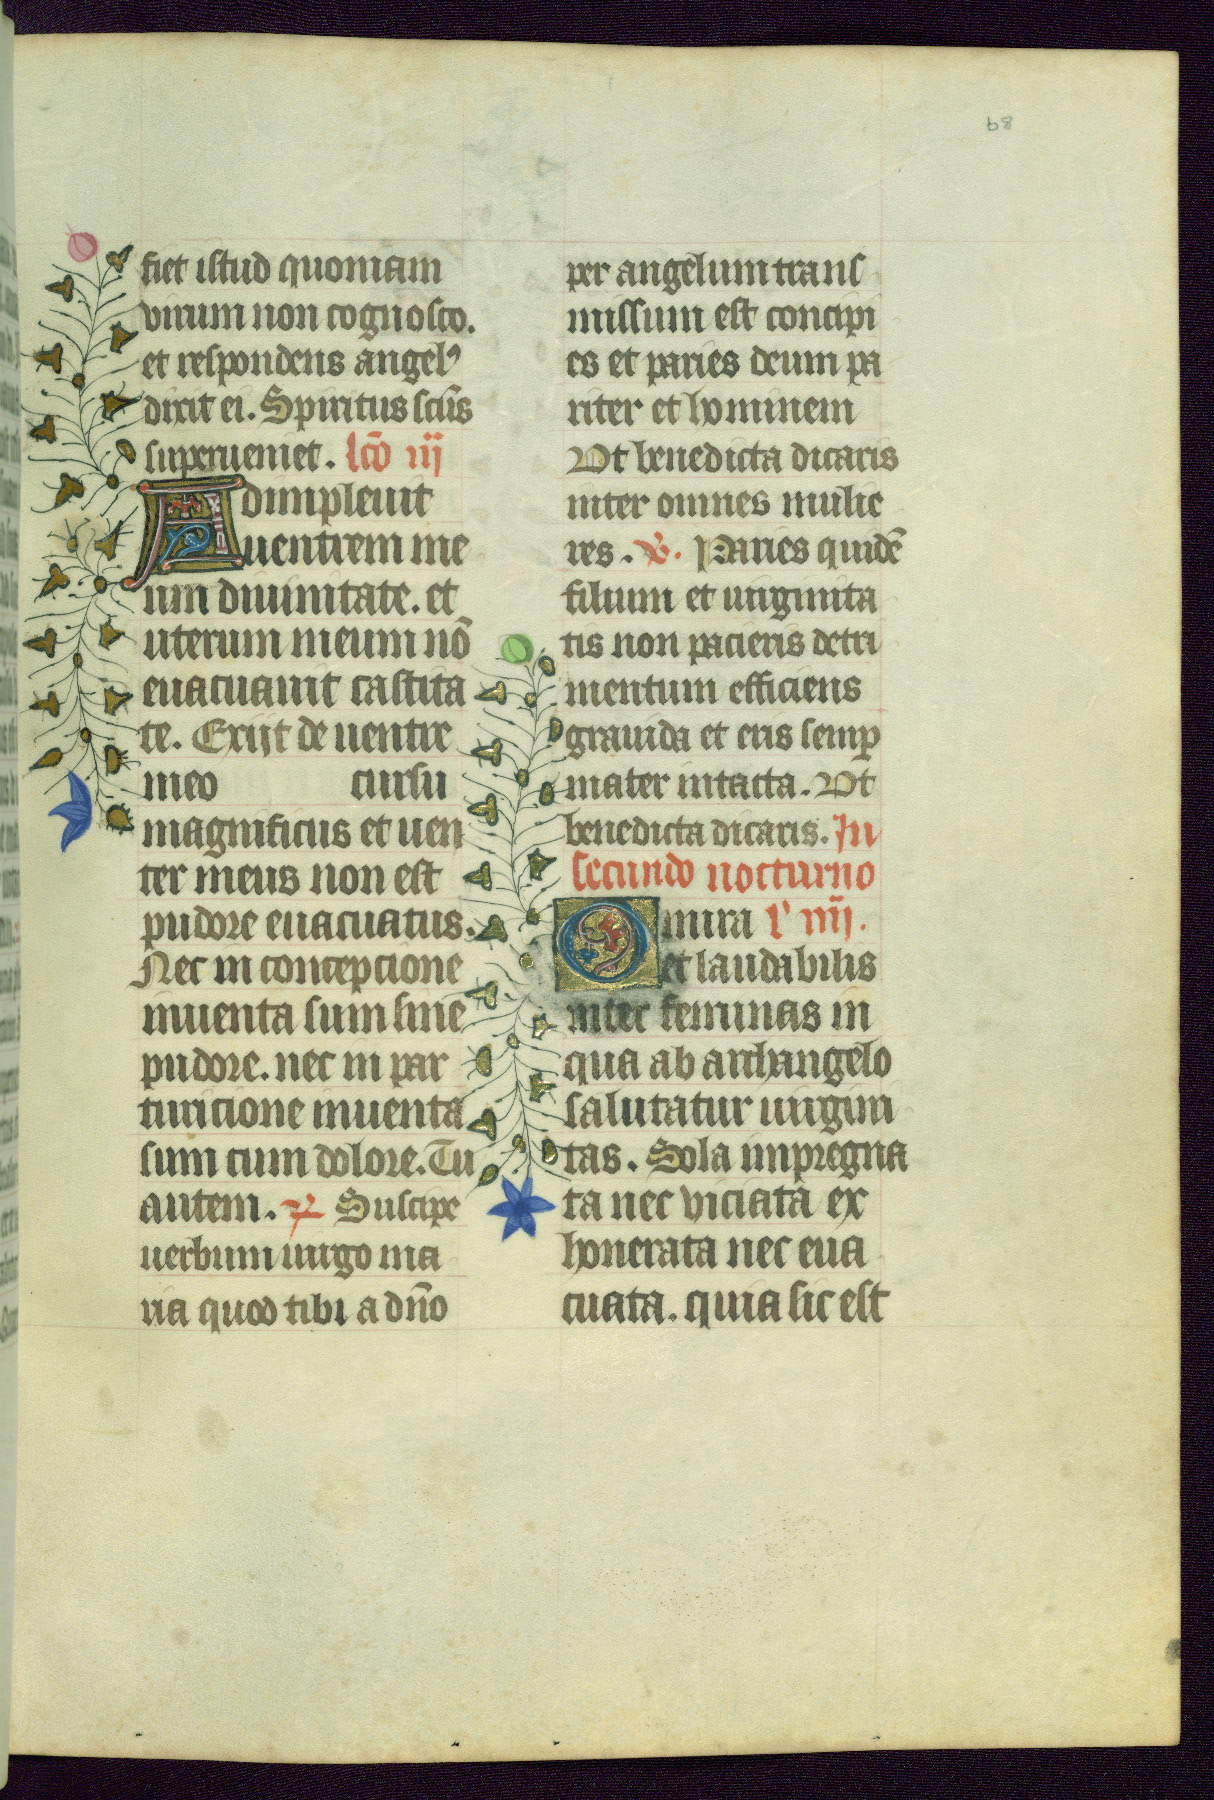 68
fiet istud quoniam
virum non cognosco.
et respondens angel⁹
dixit ei. Spiritus sc̄us
superueniet. lcō iij
Adimpleuit
uentrem me
um diuinitate. et
uterum meum nō
euacuauit castita
te. Exijt de uentre
meo cursu
magnificus et uen
ter meus non est
pudore euacuatus.
Nec in concepcione
inuenta sum sine
pudore. nec in par
turicione inuenta
sum cum dolore. Tu
autem. R Suscipe
uerbum uirgo ma
ria quod tibi a dn̄o
per angelum trans
missum est concipi
es et paries deum pa
riter et hominem
Vt benedicta dicaris
inter omnes mulie
res. V. Paries quidē
filium et uirginita
tis non pacieris detri
mentum efficiens
grauida et eris semꝑ
mater intacta. Vt
benedicta dicaris. In
secundo nocturno
O mira l' iiij.
et laudabilis
inter feminas in
qua ab archangelo
salutatur uirgini
tas. Sola impregna
ta nec viciata ex
honerata nec eua
cuata. quia sic est